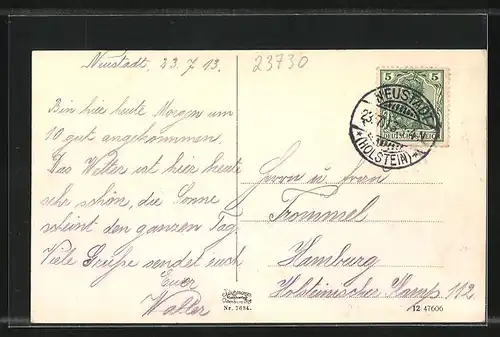 Neustadt, 23.7.13.
23730
Bin hier heute Morgen um
10 gut angekommen.
Das Wetter ist hier heute
sehr schön, die Sonne
scheint den ganzen Tag.
Viele Grüße sendet euch
Euer
Walter
5 5
DEUTSCHES REICH
NEUSTADT
23.7.13
*(HOLSTEIN)*
Herrn u. Frau
Trommel
Hamburg
Holsteinischer Kamp 112.
Nr. 7634.
12 47606